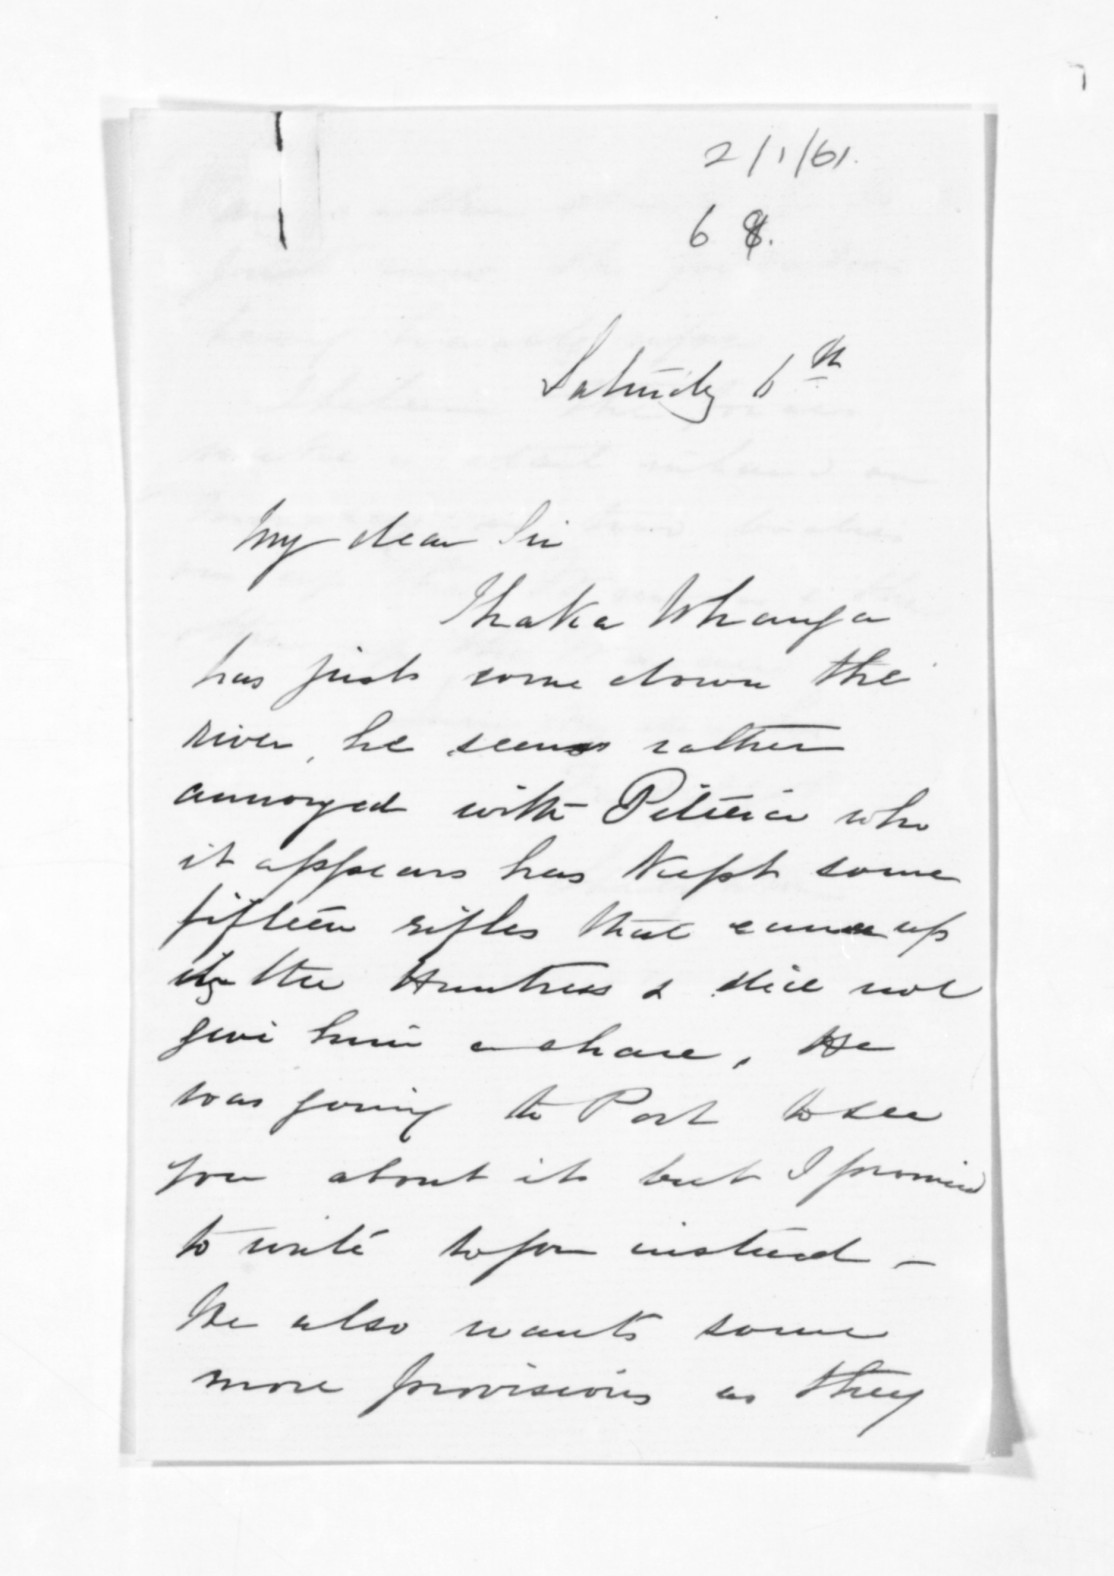 2/1/61.
6 8.
Saturdy 6th
My dear Sir
Ihaka Whanga
has just come down the
river, he seems rather
annoyed with Pitiera who
it appears has kept some
fifteen rifles that came up
by the Huntress & will not
give him a share, He
was going to Port to see
you about it but I promised
to write to you instead –
He also wants some
more provisions as they